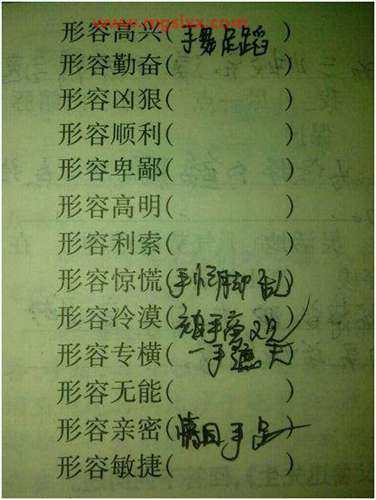 www.mgslxx.com
形容高兴(手舞足蹈)
形容勤奋( )
形容凶狠( )
形容顺利( )
形容卑鄙( )
形容高明( )
形容利索( )
形容惊慌(手忙脚乱)
形容冷漠(袖手旁观)
形容专横(一手遮天)
形容无能( )
形容亲密(情同手足)
形容敏捷( )